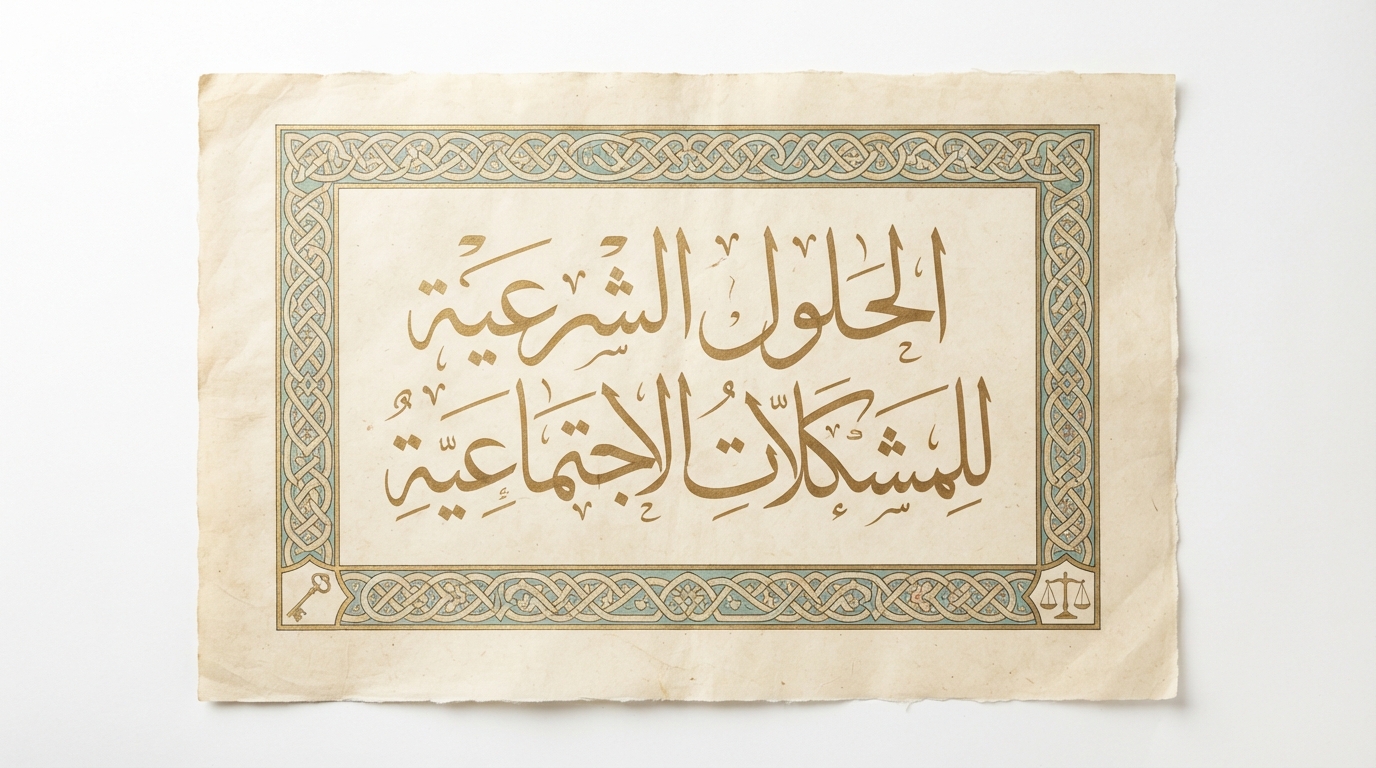 الحلول الشرعية
للمشكلاتُ الاجتماعِيّةُ